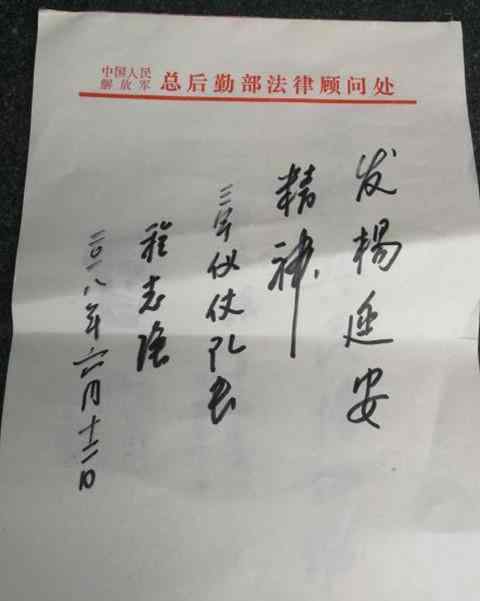 中国人民解放军 总后勤部法律顾问处
发楊延安
精神
三军仪仗队长
程志强
二〇一八年六月十二日